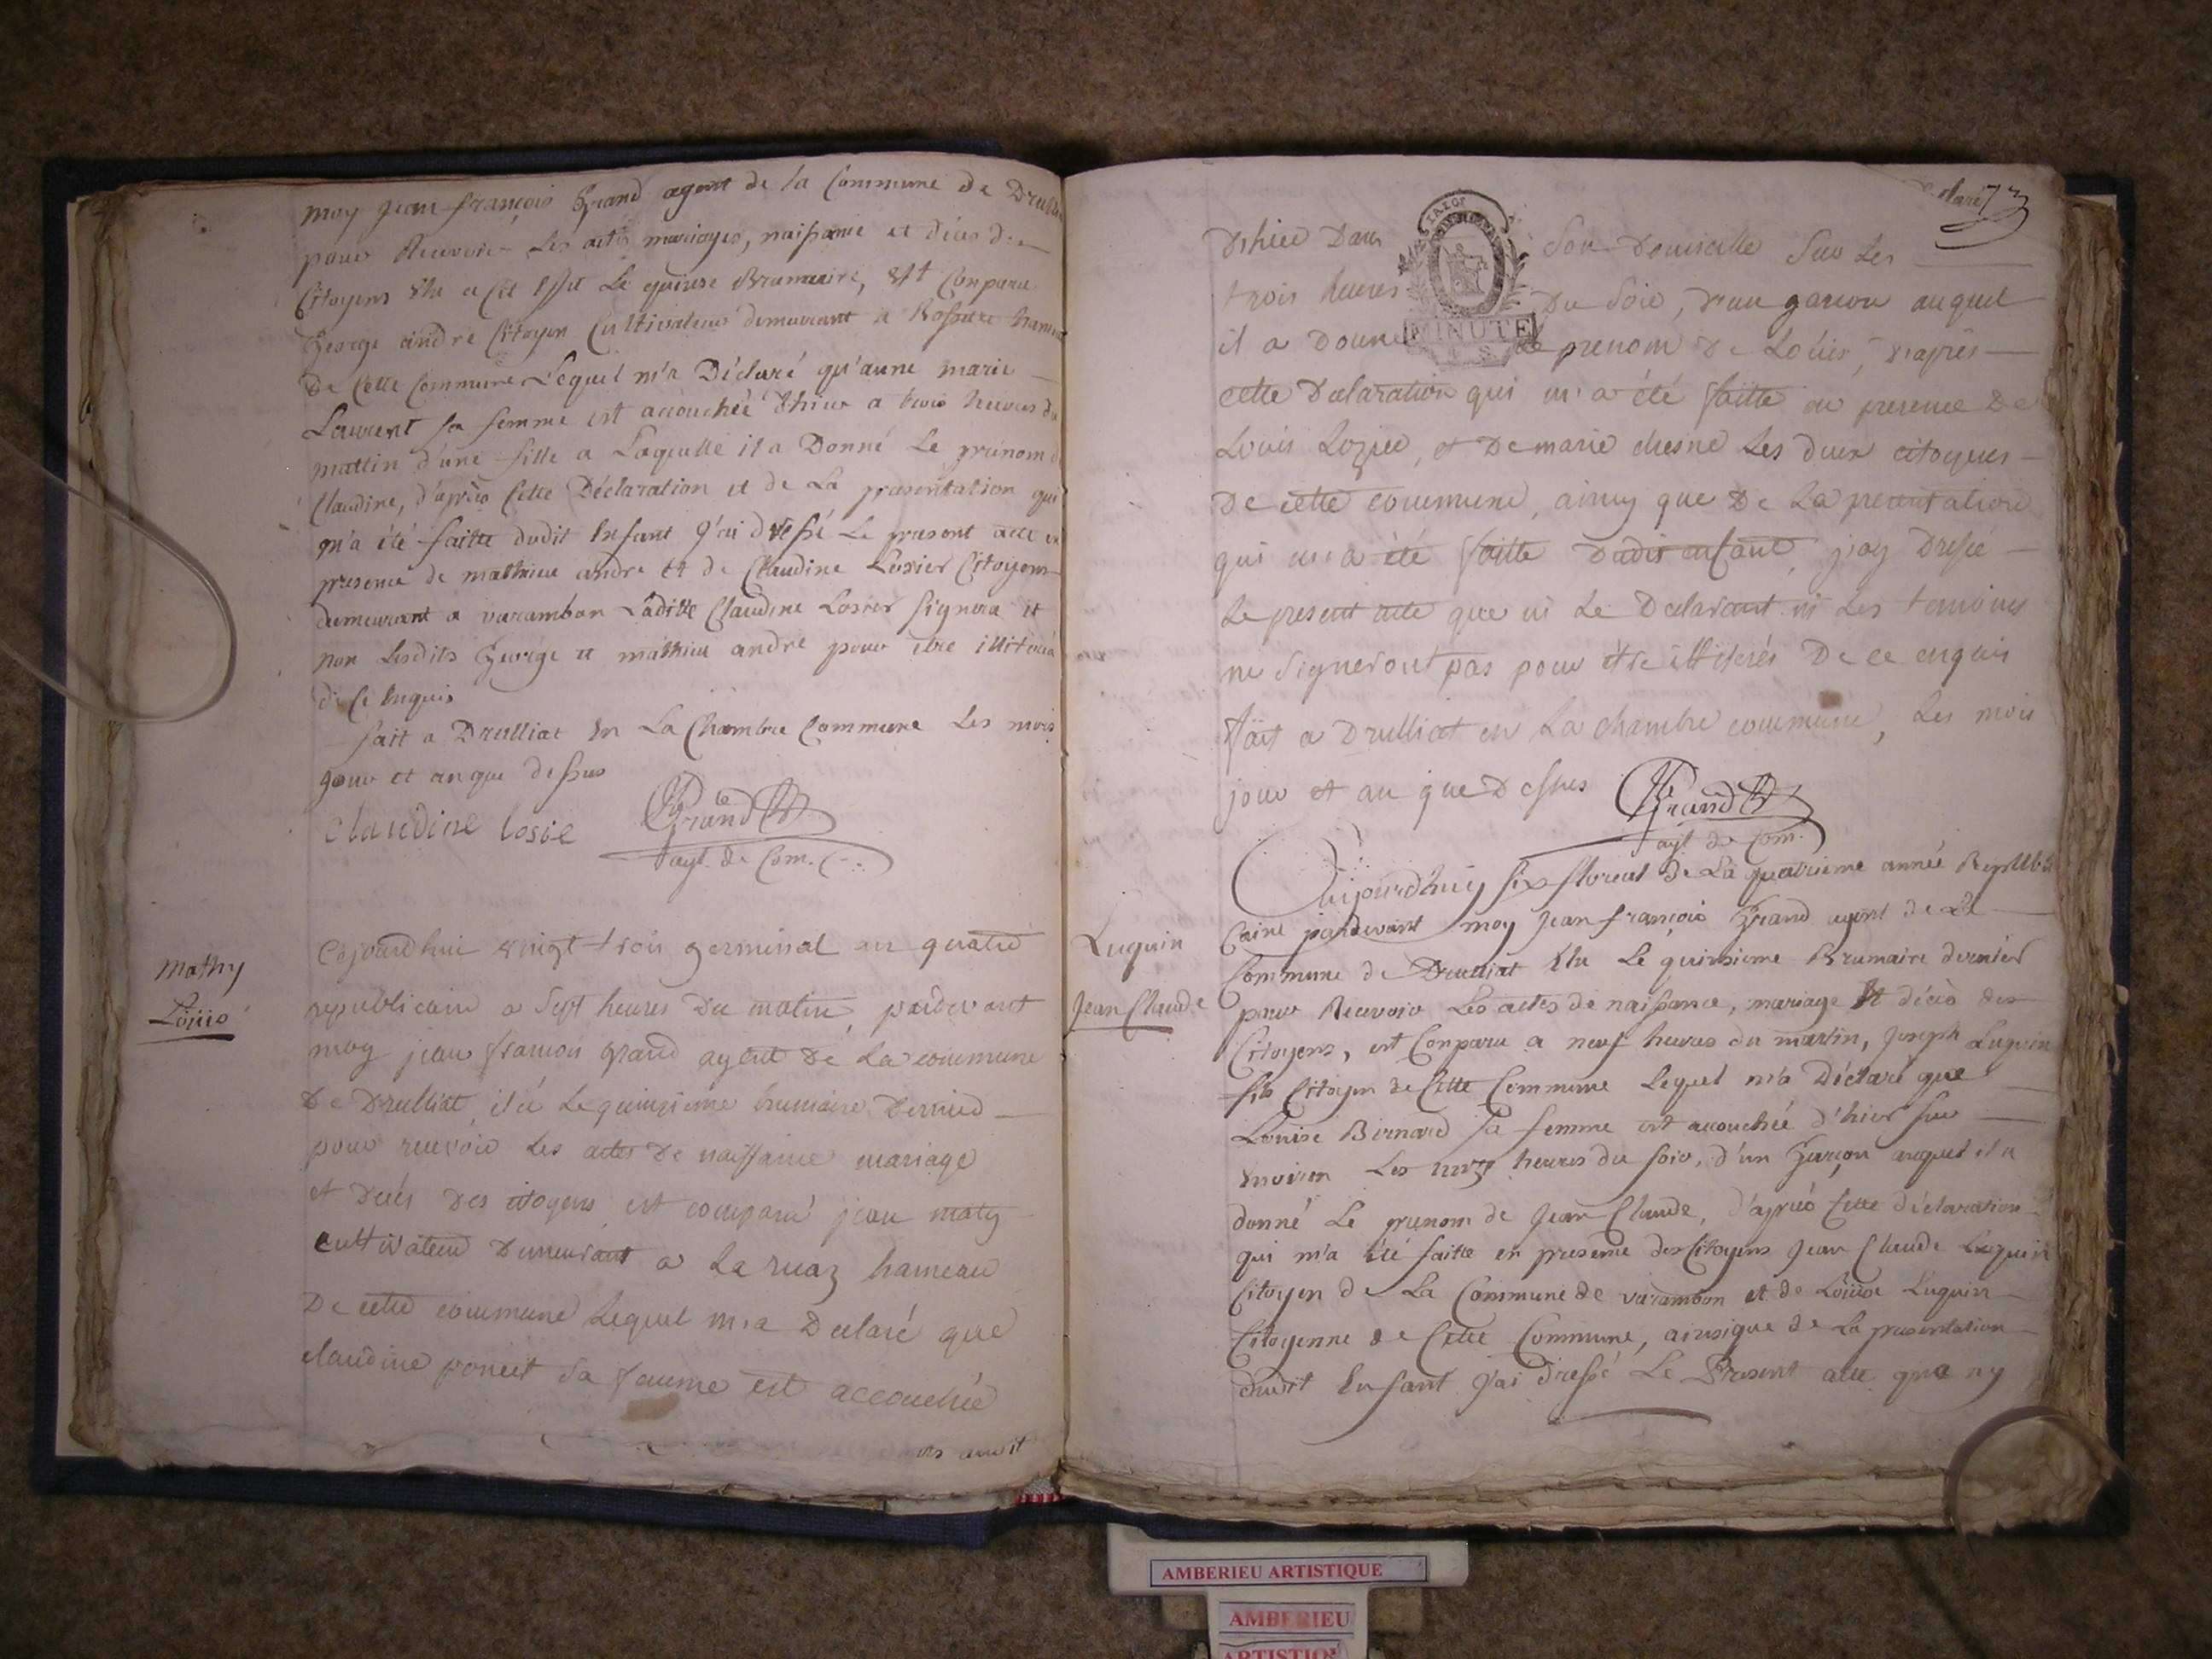 moy jean françois Grand agent de la Commune de Drulliat
pour Recevoir Les actes mariages, naissance et déces des
Citoyens Elu a cet Effet Le quinse Brumaire, Est Conparu
George andré Citoyen Cultivateur demeurant a Rossette hameau
De Cette Commune Lequel m'a Déclaré qu'anne marie
Laurent sa femme est accouchée d'hier a trois heures du
mattin d'une fille a Laquelle il a Donné Le prénom de
Claudine, d'après Cette Déclaration et de La présentation qui
m'a été faitte dudit Enfant J'ai dressé Le present acte en
presence de mathieu andre et de Claudine Losier Citoyens
demeurant a varambon Ladille Claudine Losier Signera et
non Lesdits George et mathieu andré pour être illitérés
de Ce Enquis
fait a Drulliat En La Chambre Commune Les mois
Jour et an que dessus
Claudine losie
Grand
agt. de Com.
mathy
Loüis
Cejourdhui vingt trois germinal an quatre
republicain a Sept heures Du matin, pardevant
moy jean francois grand agent De La commune
De Drulliat, élu Le quinzieme brumaire Dernier
pour recevoir Les actes De naissance mariage
et Decés Des citoyens est comparu jean maty
cultivateur Demeurant a La ruaz hameau
De cette commune Lequel m'a Declaré que
claudine poncet Sa femme est accouchée
Declaré 73
D'hier Dans Son Domicille Sur Les
trois heures Du Soir, d'un garcon auquel
MINUTE
il a Donné le prenom De Loüis, d'après
cette Declaration qui m'a été faitte en presence De
Louis Lozier, et De marie chesne Les deux citoyens
De cette commune, ainsy que De La presentation
qui m'a été faitte Dudit enfant, j'ay Dressé
Le present acte que ni Le Declarant ni Les temoins
ne Signeront pas pour être illiterés De ce enquis
fait a Drulliat en La chambre commune, Les mois
jour et an que Dessus
Grand
agt de Com.
Luquin
Jean Claude
Aujourdhuy six floreal De La quatrieme année Republi
Caine pardevant moy Jean françois Grand agent de La
Commune de Drulliat Elu Le quinsieme Brumaire dernier
pour Recevoir Les actes de naissance, mariage Et décès des
Citoyens, est Conparu a neuf heures du mattin, Joseph Luquin
fils Citoyen de Cette Commune Lequel m'a Déclaré que
Louise Bernard sa femme est accouchée d'hier sur
Environ Les onze heures du soir, d'un Garçon auquel il a
donné Le prenom de Jean Claude, d'après Cette déclaration
qui m'a été faitte en presence des Citoyens Jean Claude Luquin
Citoyen de La Commune de varambon et de Loüise Luquin
Citoyenne de Cette Commune, ainsi que de La presentation
dudit Enfant J'ai dressé Le Present acte que ny
AMBERIEU ARTISTIQUE
AMBERIEU
ARTISTIQUE